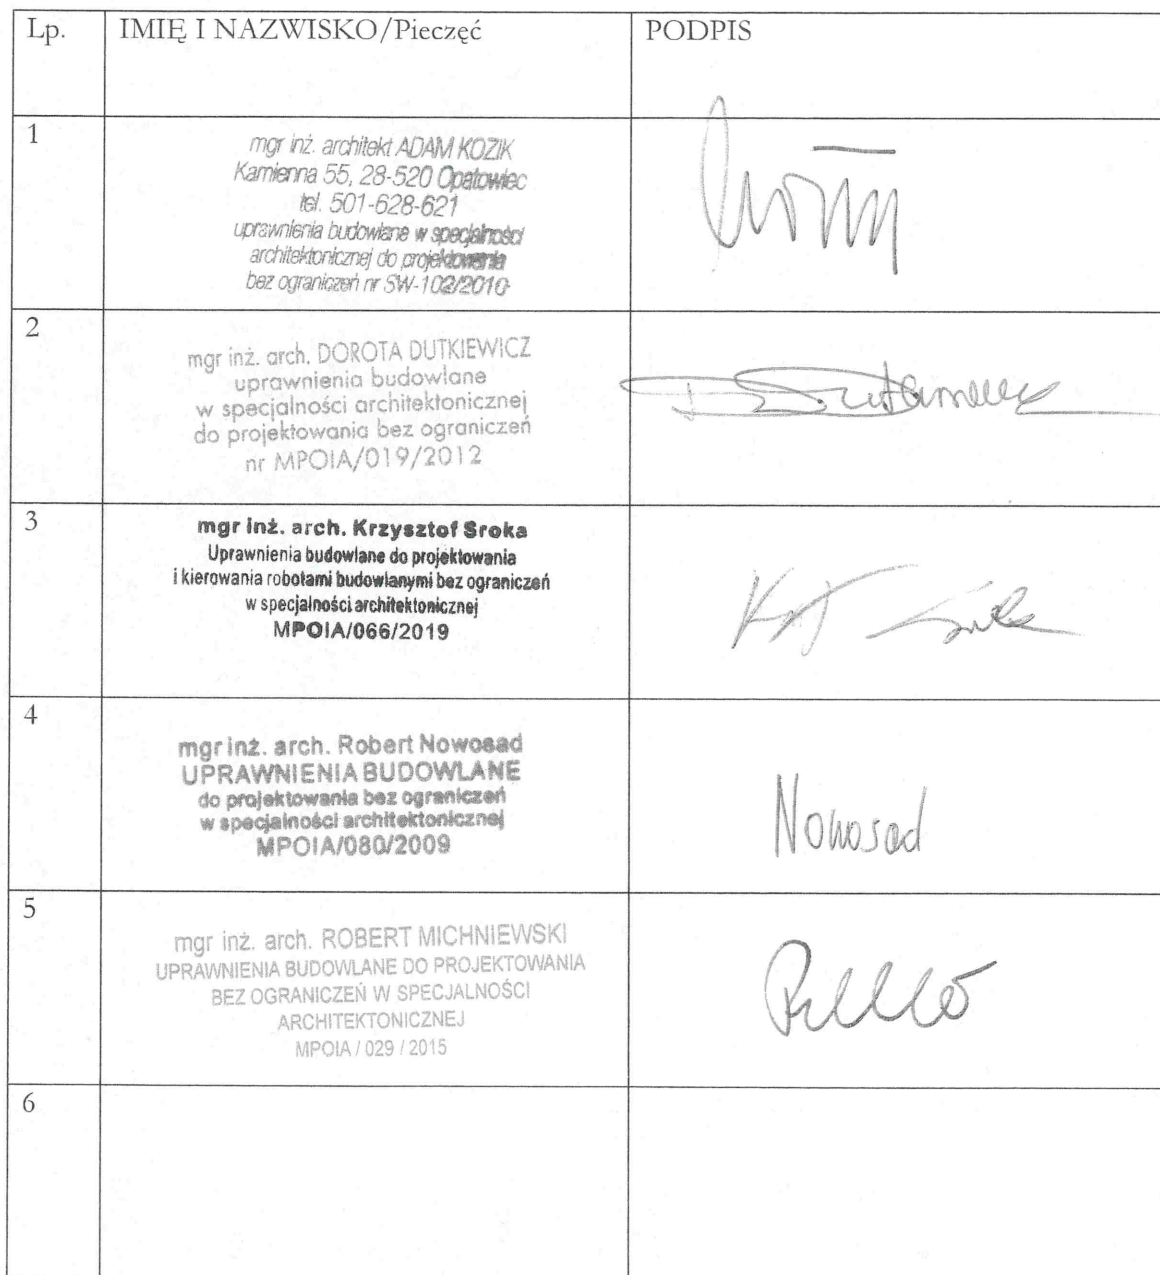 Lp. IMIĘ I NAZWISKO/Pieczęć PODPIS
1
mgr inż. architekt ADAM KOZIK
Kamienna 55, 28-520 Opatowiec
tel. 501-628-621
uprawnienia budowlane w specjalności
architektonicznej do projektowania
bez ograniczeń nr SW-102/2010
2
mgr inż. arch. DOROTA DUTKIEWICZ
uprawnienia budowlane
w specjalności architektonicznej
do projektowania bez ograniczeń
nr MPOIA/019/2012
3
mgr inż. arch. Krzysztof Sroka
Uprawnienia budowlane do projektowania
i kierowania robotami budowlanymi bez ograniczeń
w specjalności architektonicznej
MPOIA/066/2019
4
mgr inż. arch. Robert Nowosad
UPRAWNIENIA BUDOWLANE
do projektowania bez ograniczeń
w specjalności architektonicznej
MPOIA/080/2009
Nowosad
5
mgr inż. arch. ROBERT MICHNIEWSKI
UPRAWNIENIA BUDOWLANE DO PROJEKTOWANIA
BEZ OGRANICZEŃ W SPECJALNOŚCI
ARCHITEKTONICZNEJ
MPOIA / 029 / 2015
6